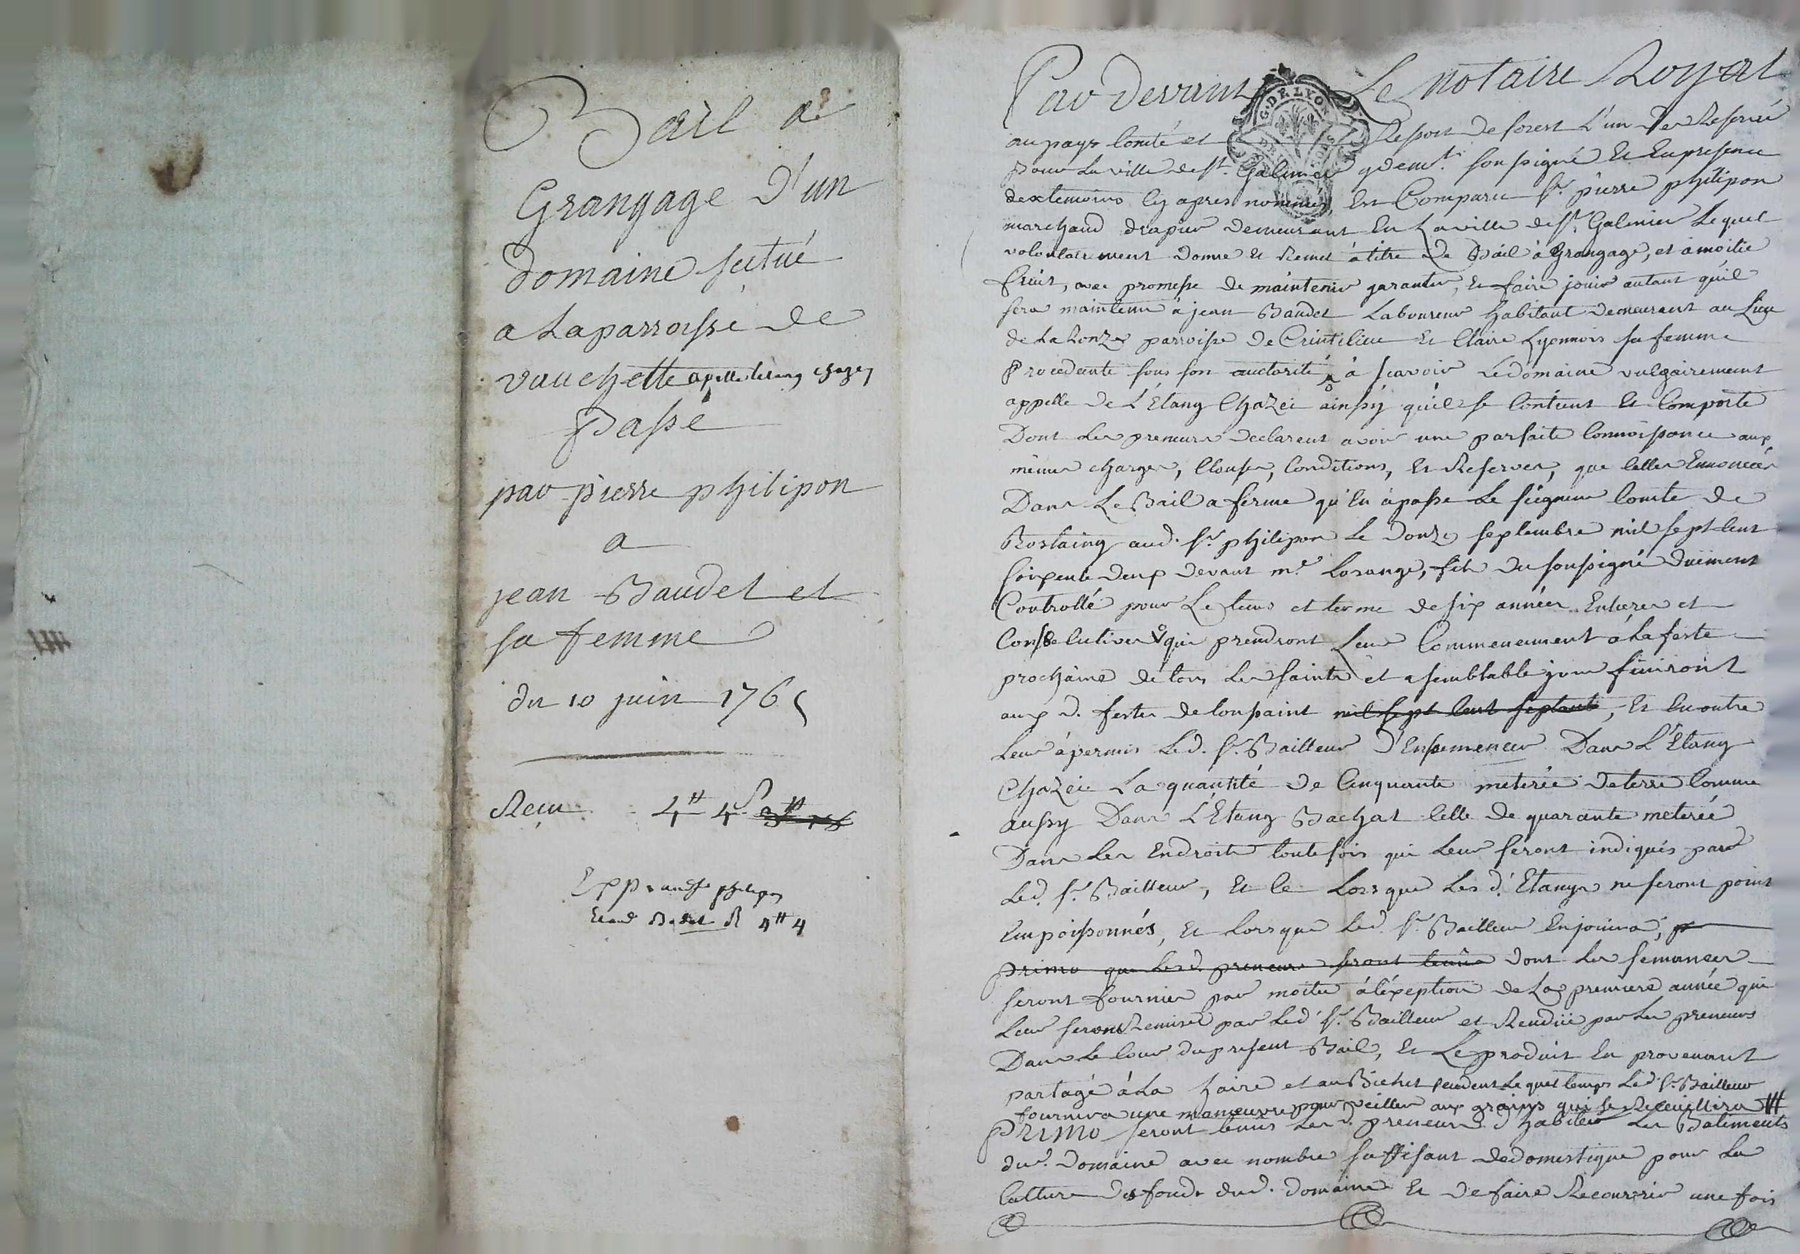 Bail a
Grangage d'un
domaine scitué
a la parroisse de
vauchette apellé letang chazey
Passé
par pierre philipon
a
jean Baudet et
sa femme
du 10 juin 1765
Reçu 4# 4s
Expp. aud. sr philipon
et aud. Baudet R 4# 4
Par devant Le notaire Royal
G. DE LYON
au pays Comté et Ressort de forest L'un des Reservés
pour La ville de St. Galmier gdemt. soussigné Et En presence
des temoins Cy apres nommés, Est Comparu Sr. pierre philipon
marchand drapier demeurant En La ville de St. Galmier Lequel
volontairement donne Et Remet à titre de Bail à Grangage, et à moitié
fruit, avec promesse de maintenir garantir, Et faire jouir autant qu'il
sera maintenu à jean Baudet Laboureur habitant demeurant au Lieu
de La Ronze parroisse de Crintilieu Et Claire Lyonnois sa femme
Procedante sous son auctorité, à sçavoir Le domaine vulgairement
appellé de L'Etang Chazei ainsy qu'il se Contient Et Comporte
Dont Les preneurs declarent avoir une parfaite Connoissance aux
mêmes charges, Clauses, Conditions, Et Reserves, que Celles Enoncées
Dans Le Bail a ferme qu'En à passé Le seigneur Comte de
Rostaing aud. Sr. philipon Le douze septembre mil sept Cent
soixente deux devant me. Lorange, fils du soussigné duëment
Controllé pour Le tems et terme de six années Entieres et
Consecutives qui prendront Leur Commencement à La feste
prochaine de tous Les saints et a semblable jour finiront
aux d. festes de toussaint mil sept Cent septante, Et En outre
Leur à permis Led. Sr. Bailleur d'Ensemencer Dans L'Etang
Chazei La quantité de Cinquante meterée de terre Comme
aussy Dans L'Etang Bachat Celle de quarante meterée
Dans Les Endroits toutefois qui Leur seront indiqués par
Led. Sr. Bailleur, Et Ce Lorsque Les d. Etangs ne seront point
Empoissonnés, Et Lorsque Led. Sr. Bailleur En jouira,
primo que Lesd. preneurs seront tenûs dont Les semances
seront fournies par moitié à l'exeption de La premiere année qui
Leur seront Remises par Led. Sr. Bailleur et Rendüe par Les preneurs
Dans Le Cour du present Bail, Et Le produit En provenant
partagé à La haire et au Bichet pendent Lequel temps Led. Sr. Bailleur
fournira une manœuvre pour veiller aux grains qui se Recuillira
PRIMO seront tenus Les d. preneurs d'habiter Les Batiments
dud. domaine avec nombre suffisant de domestique pour La
Culture des fonds dud. domaine Et de faire Recouvrir une fois